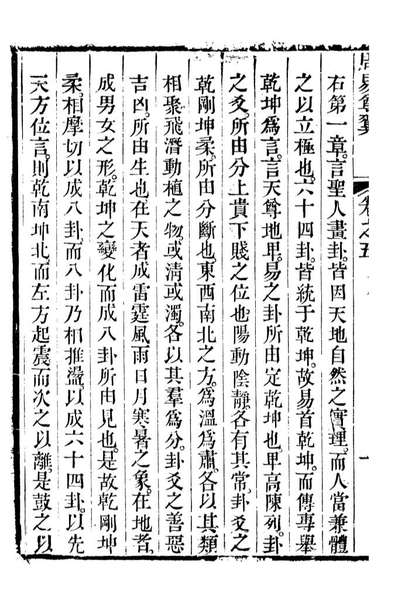 右第一章言聖人畫卦皆因天地自然之實理而人當兼體
之以立極也六十四卦皆統于乾坤故易首乾坤而傳專舉
乾坤為言言天尊地卑易之卦所由定乾坤也卑高陳列卦
之爻所由分上貴下賤之位也陽動陰靜各有其常卦爻之
乾剛坤柔所由分斷也東西南北之方為溫為肅各以其類
相聚飛潛動植之物或清或濁各以其羣為分卦爻之善惡
吉凶所由生也在天者成雷霆風雨日月寒暑之象在地者
成男女之形乾坤之變化而成八卦所由見也是故乾剛坤
柔相摩切以成八卦而八卦乃相推盪以成六十四卦以先
天方位言則乾南坤北而左方起震而次之以離是鼓之以